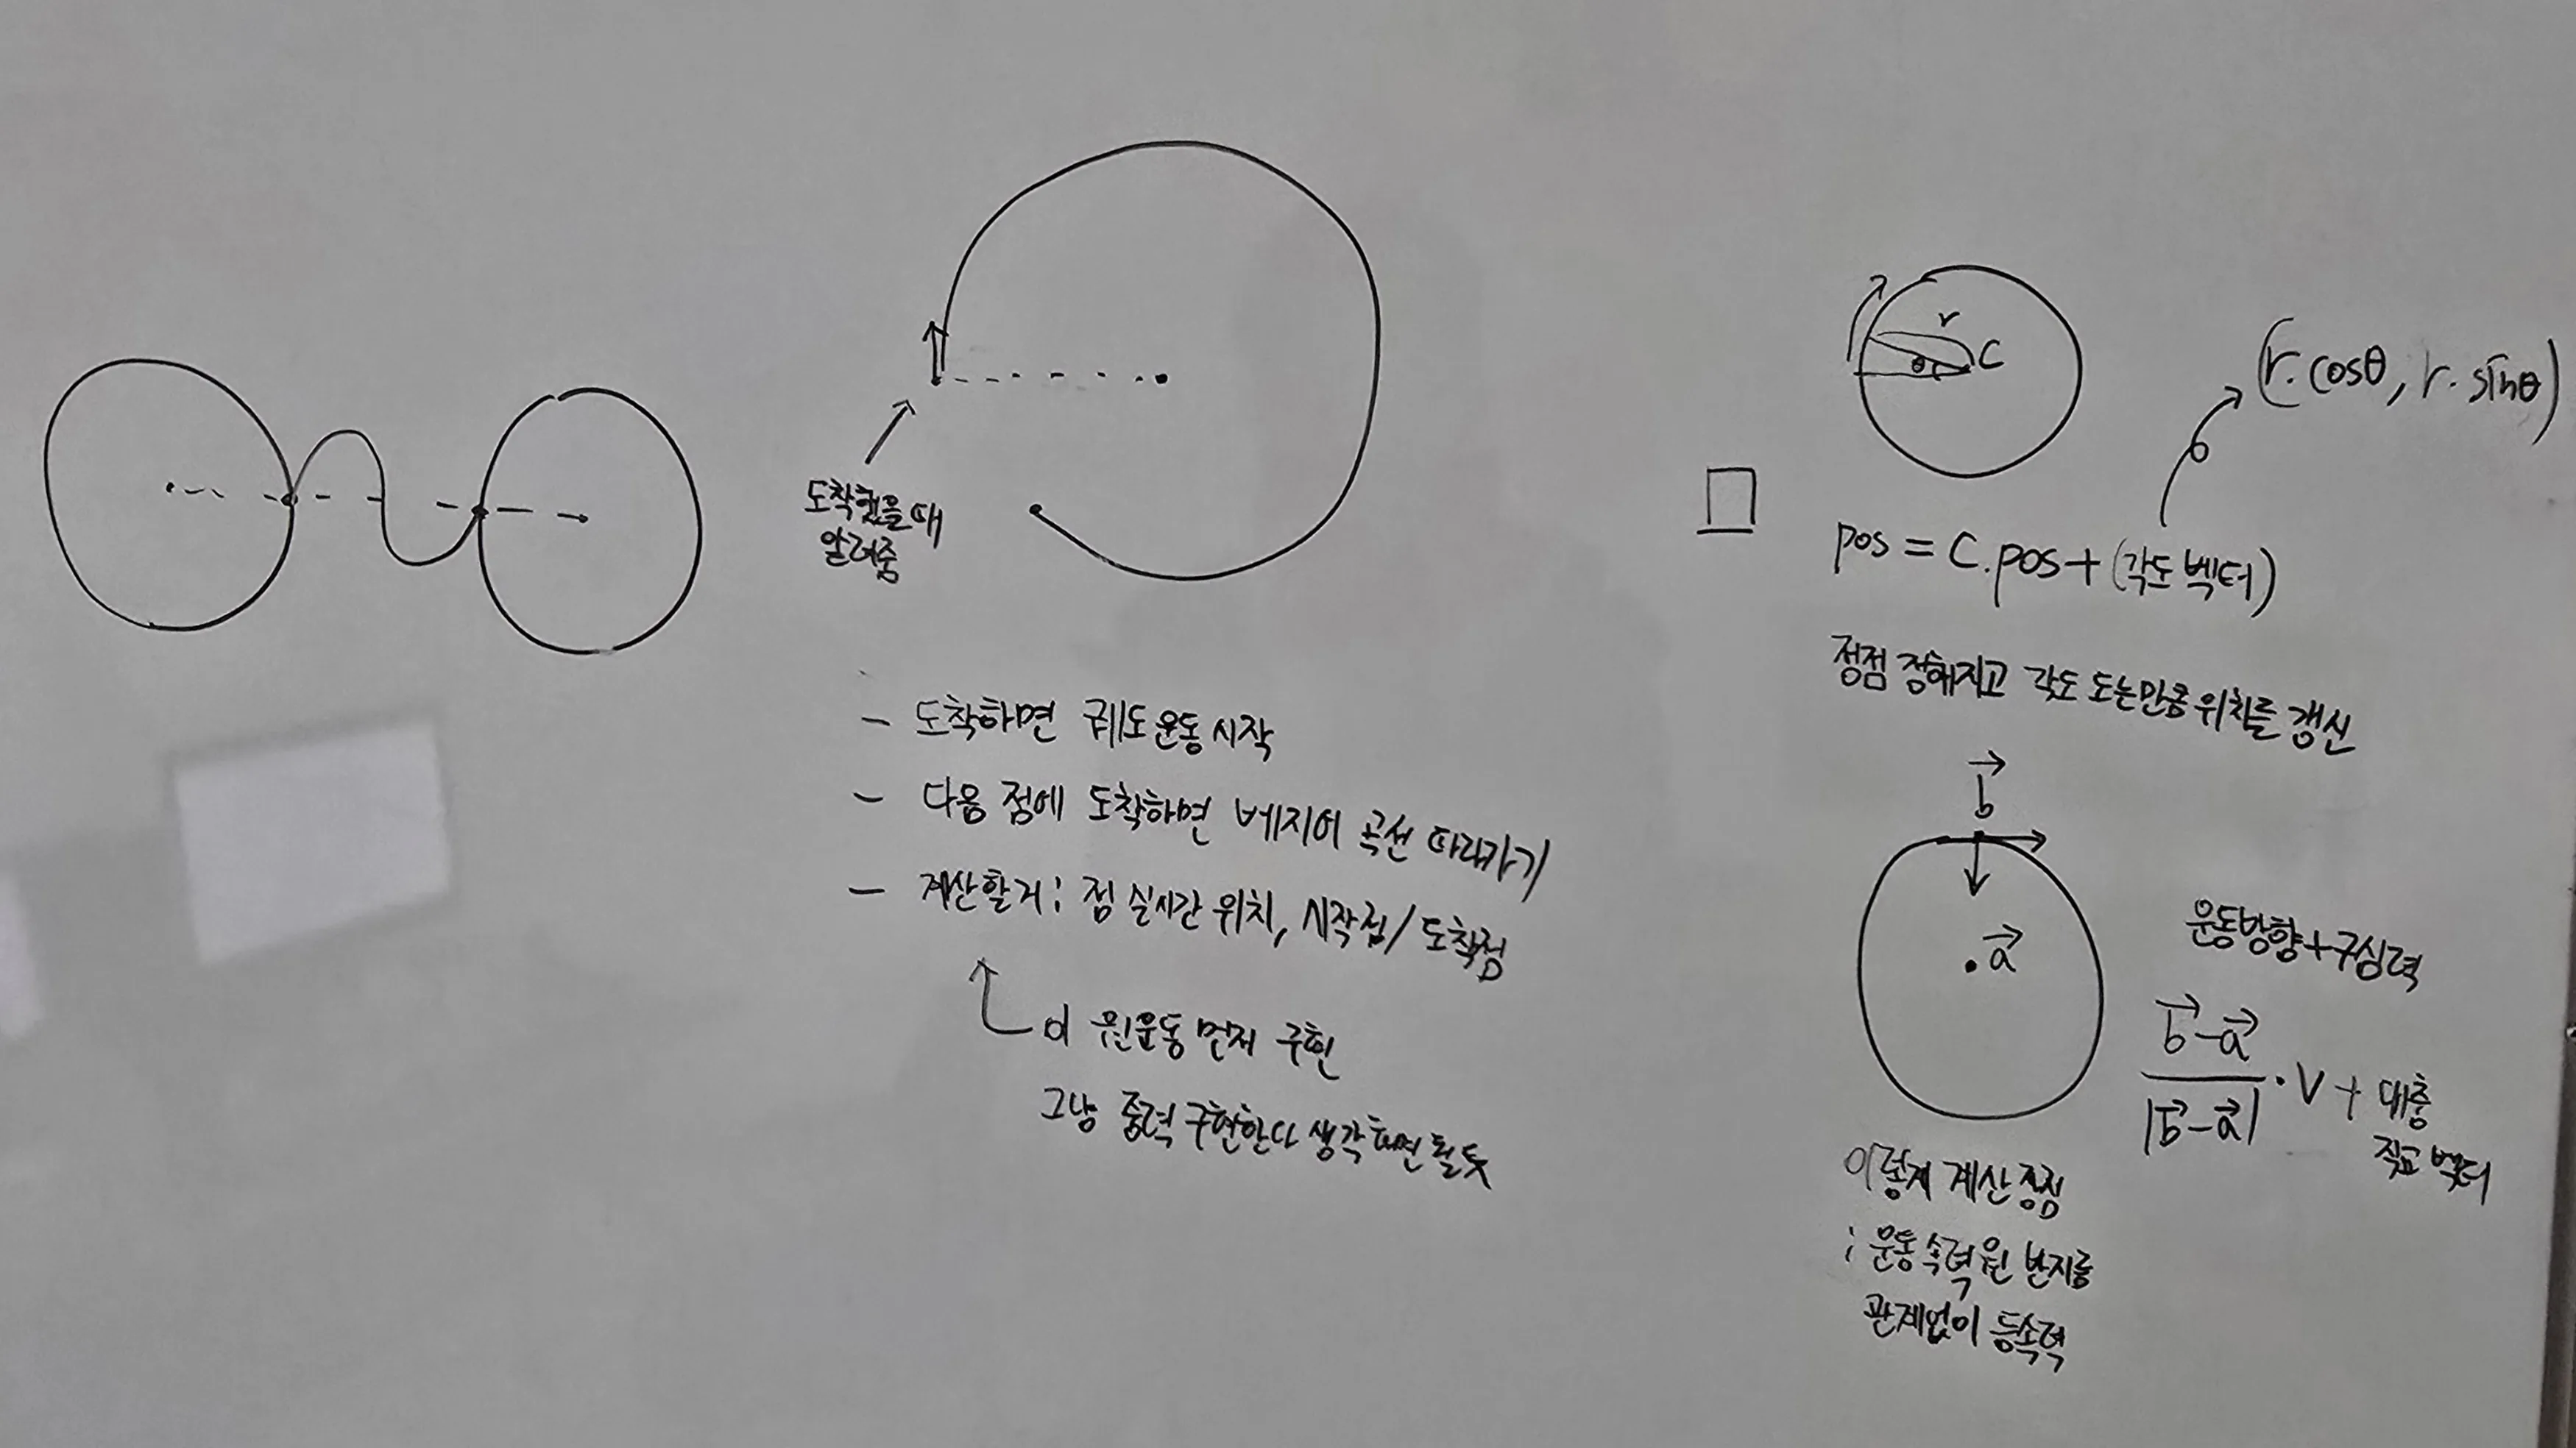 도착했을 때
알려줌
- 도착하면 궤도운동 시작
- 다음 점에 도착하면 베지어 곡선 따라가기
- 계산할거 : 점 실시간 위치, 시작점/도착점
이 원운동 먼저 구현
그냥 중력 구현한다 생각하면 될듯
r
θ
C
(r·cosθ, r·sinθ)
pos = C.pos + (각도 벡터)
정점 정해지고 각도 도는만큼 위치를 갱신
b⃗
a⃗
운동방향+구심력
(b⃗-a⃗)/|b⃗-a⃗| · V + 대충
직교 벡터
이렇게 계산 장점
: 운동 속력 원 반지름
관계없이 등속력